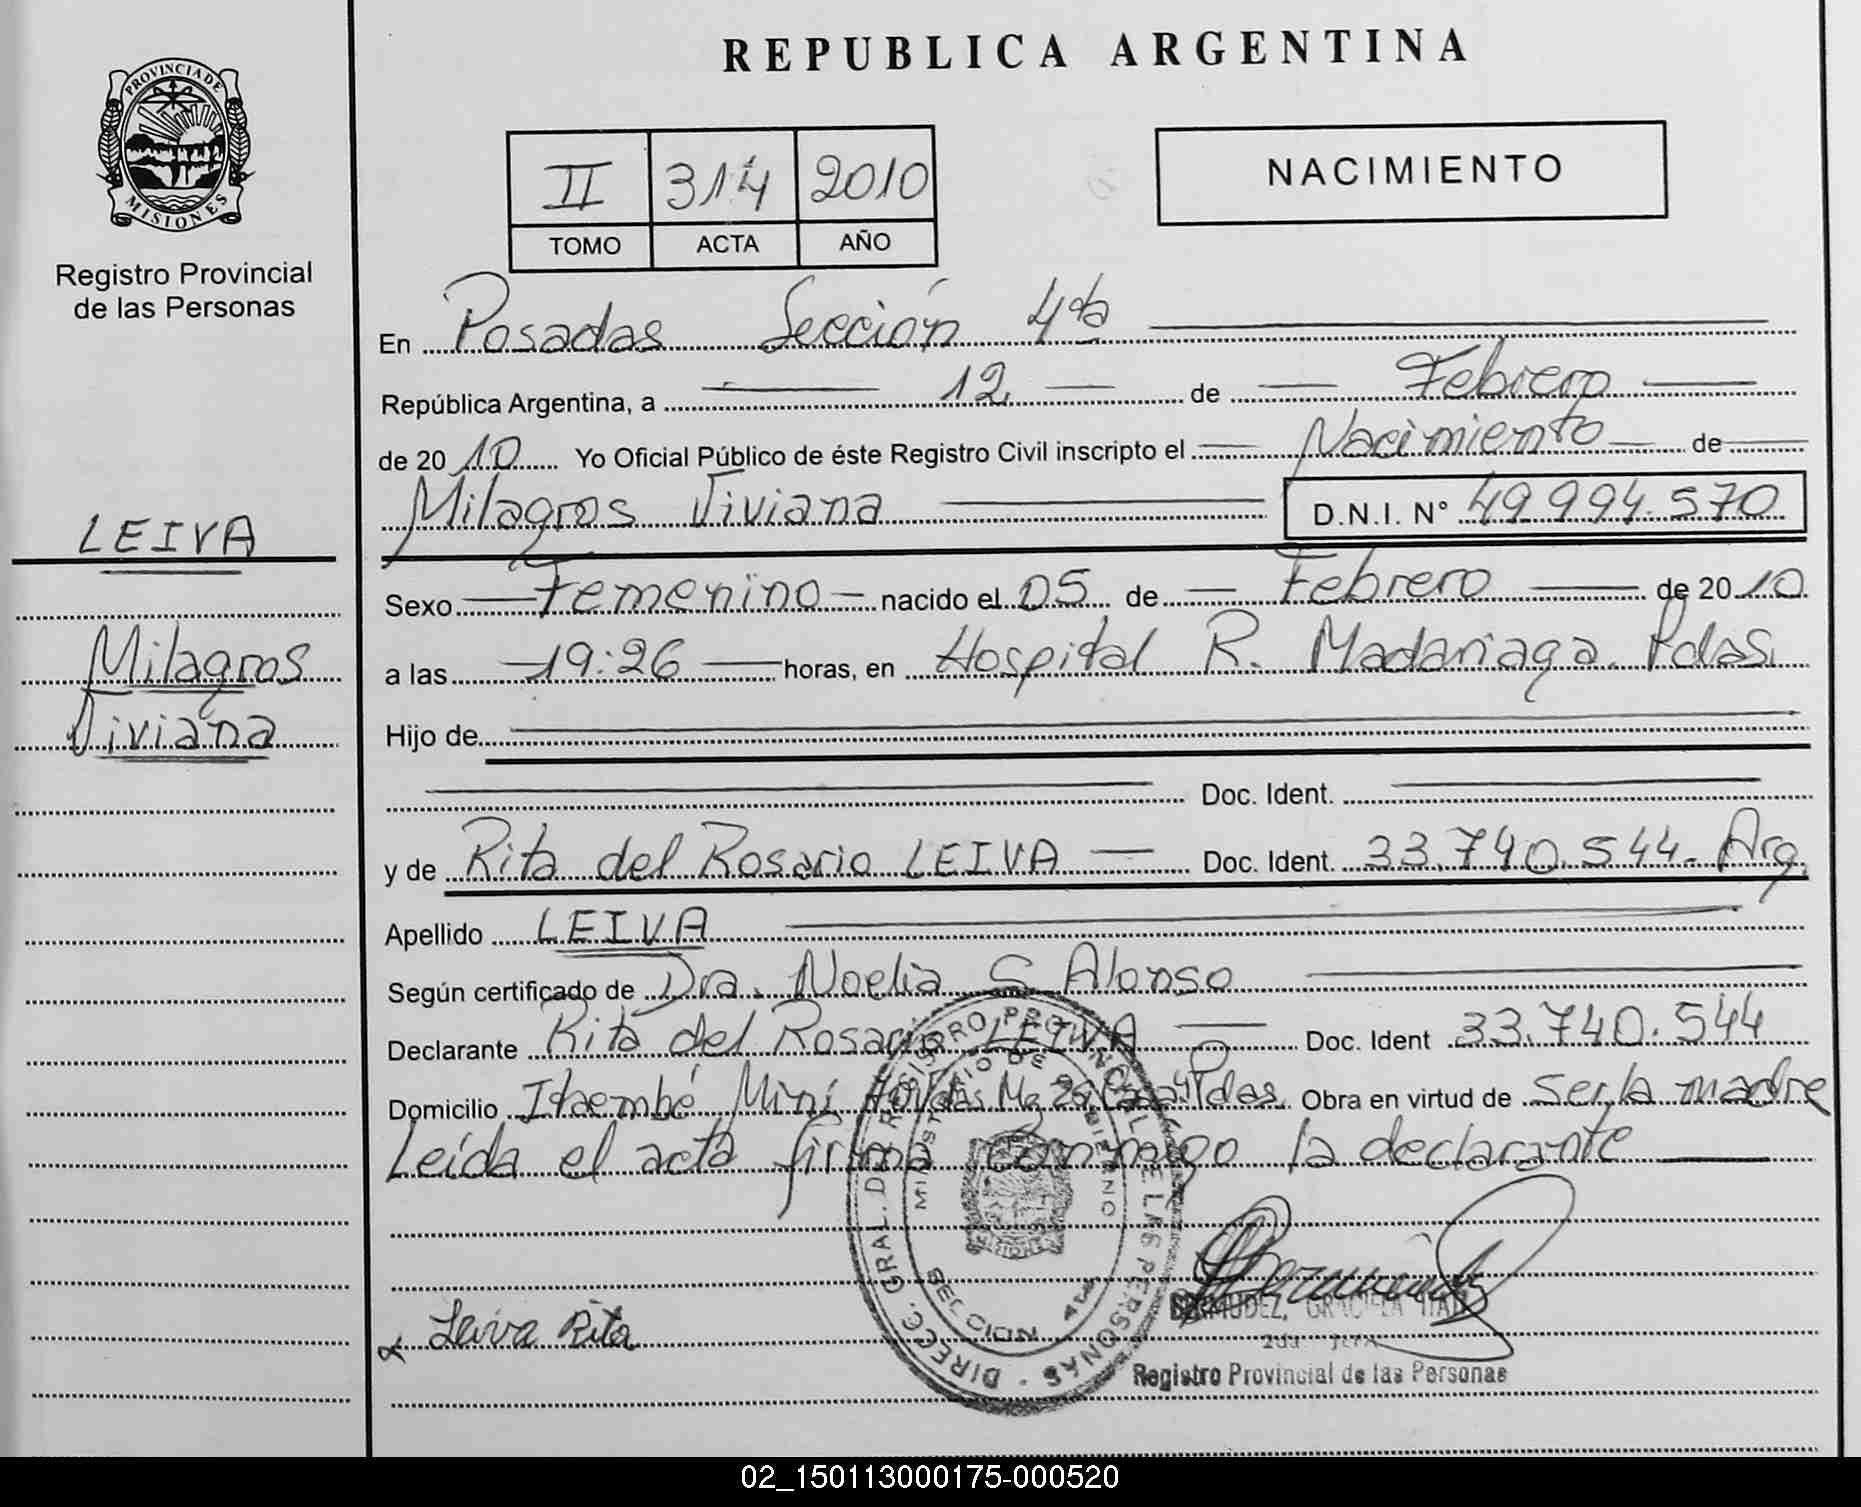 REPUBLICA ARGENTINA
PROVINCIA DE
MISIONES
Registro Provincial
de las Personas
II 314 2010
TOMO ACTA AÑO
NACIMIENTO
En Posadas Sección 4ta
República Argentina, a 12 de Febrero
de 2010 Yo Oficial Público de éste Registro Civil inscripto el Nacimiento de
Milagros Viviana D.N.I. N° 49.994.570
LEIVA
Milagros
Viviana
Sexo Femenino nacido el 05 de Febrero de 2010
a las 19:26 horas, en Hospital R. Madariaga. Pdas.
Hijo de
Doc. Ident.
y de Rita del Rosario LEIVA Doc. Ident. 33.740.544. Arg.
Apellido LEIVA
Según certificado de Dra. Noelia S Alonso
Declarante Rita del Rosario LEIVA Doc. Ident 33.740.544
Domicilio Itaembé Miní Mz 26 Pdas. Obra en virtud de ser la madre
Leída el acta firma conmigo la declarante
DIRECC. GRAL. DE REGISTRO PROVINCIAL DE LAS PERSONAS
MINISTERIO DE GOBIERNO
SECCION 4ta
Leiva Rita
BERMUDEZ, GRACIELA
2da Jefa
Registro Provincial de las Personas
02_150113000175-000520